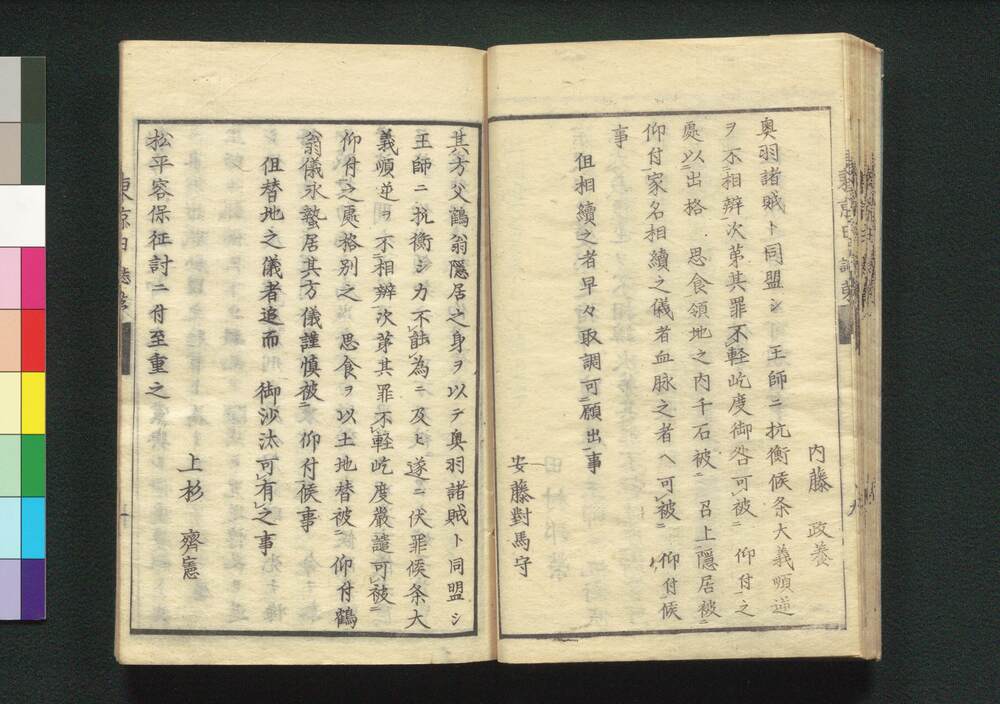 内藤　政養
奥羽諸賊ト同盟シ　王師ニ抗衡候条大義順逆
ヲ不相辨次第其罪不軽屹度御咎可被ニ　仰付之
處以出格　思食領地之内千石被ニ　召上隠居被ニ
仰付家名相續之儀者血脉之者ヘ可被ニ　仰付候
事
但相續之者早々取調可願出事
安藤對馬守
其方父鶴翁隠居之身ヲ以テ奥羽諸賊ト同盟シ
王師ニ抗衡シカ不蝕為ニ及ヒ遂ニ伏罪候条大
義順逆ヲ不相辨次第其罪不軽屹度嚴譴可被ニ
仰付之處格別之　思食ヲ以土地替被ニ　仰付鶴
翁儀永蟄居其方儀謹慎被ニ　仰付候事
但替地之儀者追而　御沙汰可有之事
上杉　齊憲
松平容保征討ニ付至重之
東京日誌